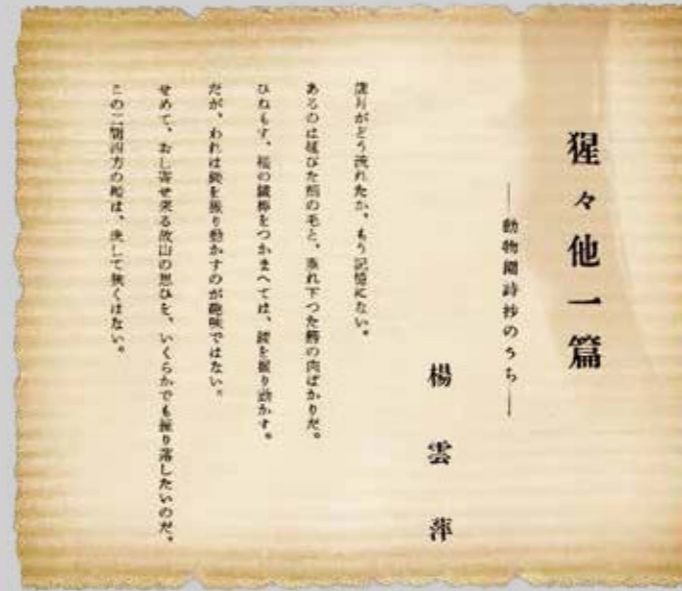 猩々他一篇
――動物園詩抄のうち――
楊雲萍
歳月がどう流れたか、もう記憶にない。
あるのは延びた顔の毛と、垂れ下つた頬の肉ばかりだ。
ひねもす、檻の鐵棒をつかまへては、腰を振り動かす。
だが、われは腰を振り動かすのが趣味ではない。
せめて、おし寄せ来る故山の思ひを、いくらかでも振り落したいのだ。
この二間四方の檻は、決して狭くはない。